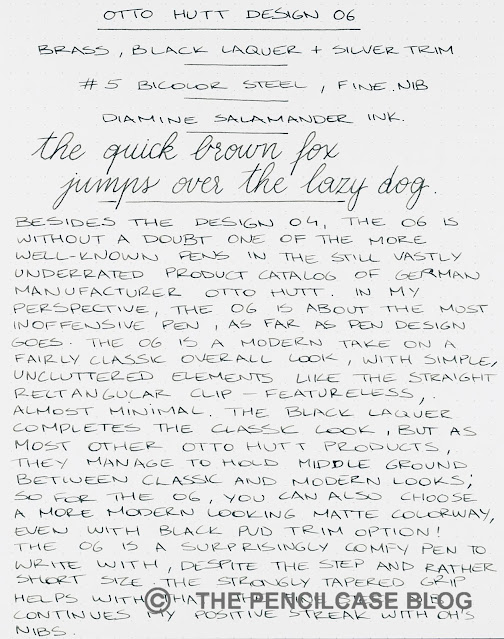 OTTO HUTT DESIGN 06
BRASS, BLACK LAQUER + SILVER TRIM
#5 BICOLOR STEEL, FINE NIB
DIAMINE SALAMANDER INK.
the quick brown fox
jumps over the lazy dog.
BESIDES THE DESIGN 04, THE 06 IS
WITHOUT A DOUBT ONE OF THE MORE
WELL-KNOWN PENS IN THE STILL VASTLY
UNDERRATED PRODUCT CATALOG OF GERMAN
MANUFACTURER OTTO HUTT. IN MY
PERSPECTIVE, THE 06 IS ABOUT THE MOST
INOFFENSIVE PEN, AS FAR AS PEN DESIGN
GOES. THE 06 IS A MODERN TAKE ON A
FAIRLY CLASSIC OVERALL LOOK, WITH SIMPLE,
UNCLUTTERED ELEMENTS LIKE THE STRAIGHT
RECTANGULAR CLIP - FEATURELESS,
ALMOST MINIMAL. THE BLACK LAQUER
COMPLETES THE CLASSIC LOOK, BUT AS
MOST OTHER OTTO HUTT PRODUCTS,
THEY MANAGE TO HOLD MIDDLE GROUND
BETWEEN CLASSIC AND MODERN LOOKS;
SO FOR THE 06, YOU CAN ALSO CHOOSE
A MORE MODERN LOOKING MATTE COLORWAY,
EVEN WITH BLACK PVD TRIM OPTION!
THE 06 IS A SURPRISINGLY COMFY PEN TO
WRITE WITH, DESPITE THE STEP AND RATHER
SHORT SIZE. THE STRONGLY TAPERED GRIP
HELPS WITH
© THE PENCILCASE BLOG
CONTINUES MY POSITIVE STREAK WITH OH'S
NIBS.